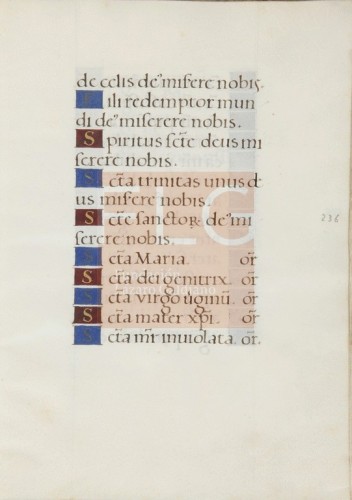 de celis de᷒ miſere nobis.
Fili redemptor mun
di de᷒ miſerere nobis.
Spiritus ſct̄e deus mi
ſerere nobis.
Sct̄a trinitas unus de
us miſere nobis.
Sct̄e ſanctoꝝ de᷒ mi
ſerere nobis.
Sct̄a Maria. or̄
Sct̄a dei genitrix. or̄
Sct̄a virgo uginū. or̄
Sct̄a mater xp̄i. or̄
Sct̄a mr̄ inuiolata. or̄.
236
FLG